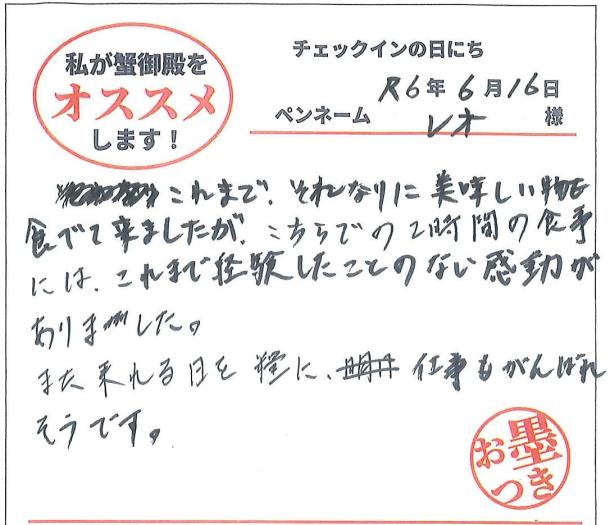 私が蟹御殿を
オススメ
します!
チェックインの日にち
R6年6月16日
ペンネーム レオ 様
これまで、それなりに美味しい物を
食べて来ましたが、こちらでの2時間の食事
には、これまで経験したことのない感動が
ありました。
また来れる日を糧に、仕事もがんばれ
そうです。
お墨
つき